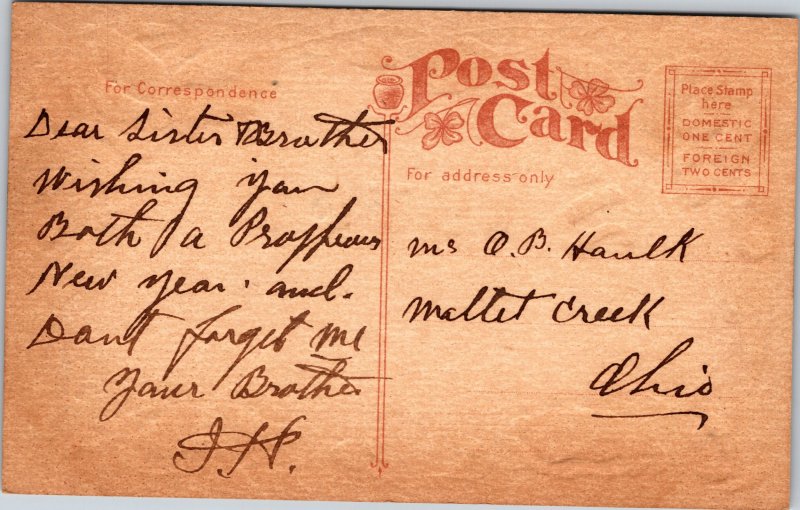 Post
Card
For Correspondence
Place Stamp
here
DOMESTIC
ONE CENT
FOREIGN
TWO CENTS
For address only
Dear Sister & Brother
Wishing you
Both a
New year. and.
Dont forget me
Your Brother
J.H.
O.B. Haulk
Mallet Creek
Ohio